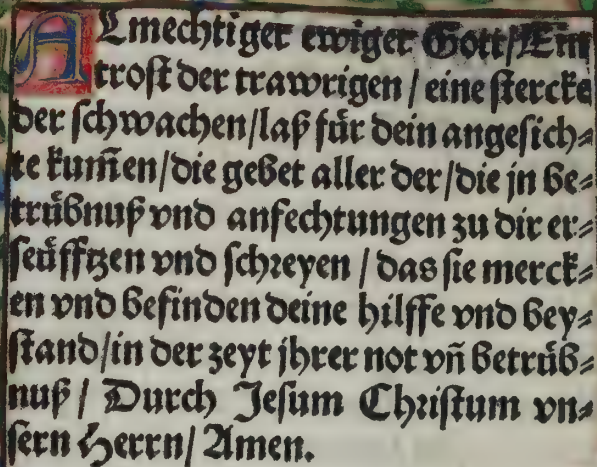 ALmechtiger ewiger Gott/ Ein
trost der trawrigen / eine stercke
der schwachen/laß für dein angesich⸗
te kum̃en/die gebet aller der/die jn be⸗
trübnuß vnd anfechtungen zu dir er⸗
seüfftzen vnd schreyen / das sie merck⸗
en vnd befinden deine hilffe vnd bey⸗
stand/in der zeyt jhrer not vñ betrüb⸗
nuß / Durch Jesum Christum vn⸗
sern Herrn/ Amen.